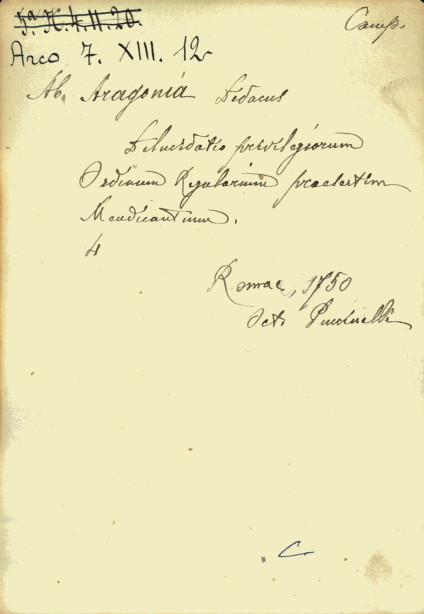 5ª. K. 4. II. 20.
Camp.
Arco 7. XIII. 12
Ab Aragoniá Didacus
Dilucidatio privilegiorum
Ordinum Regularium praesertim
Mendicantium.
4
Romae, 1750
Oct. Puccinelli
C